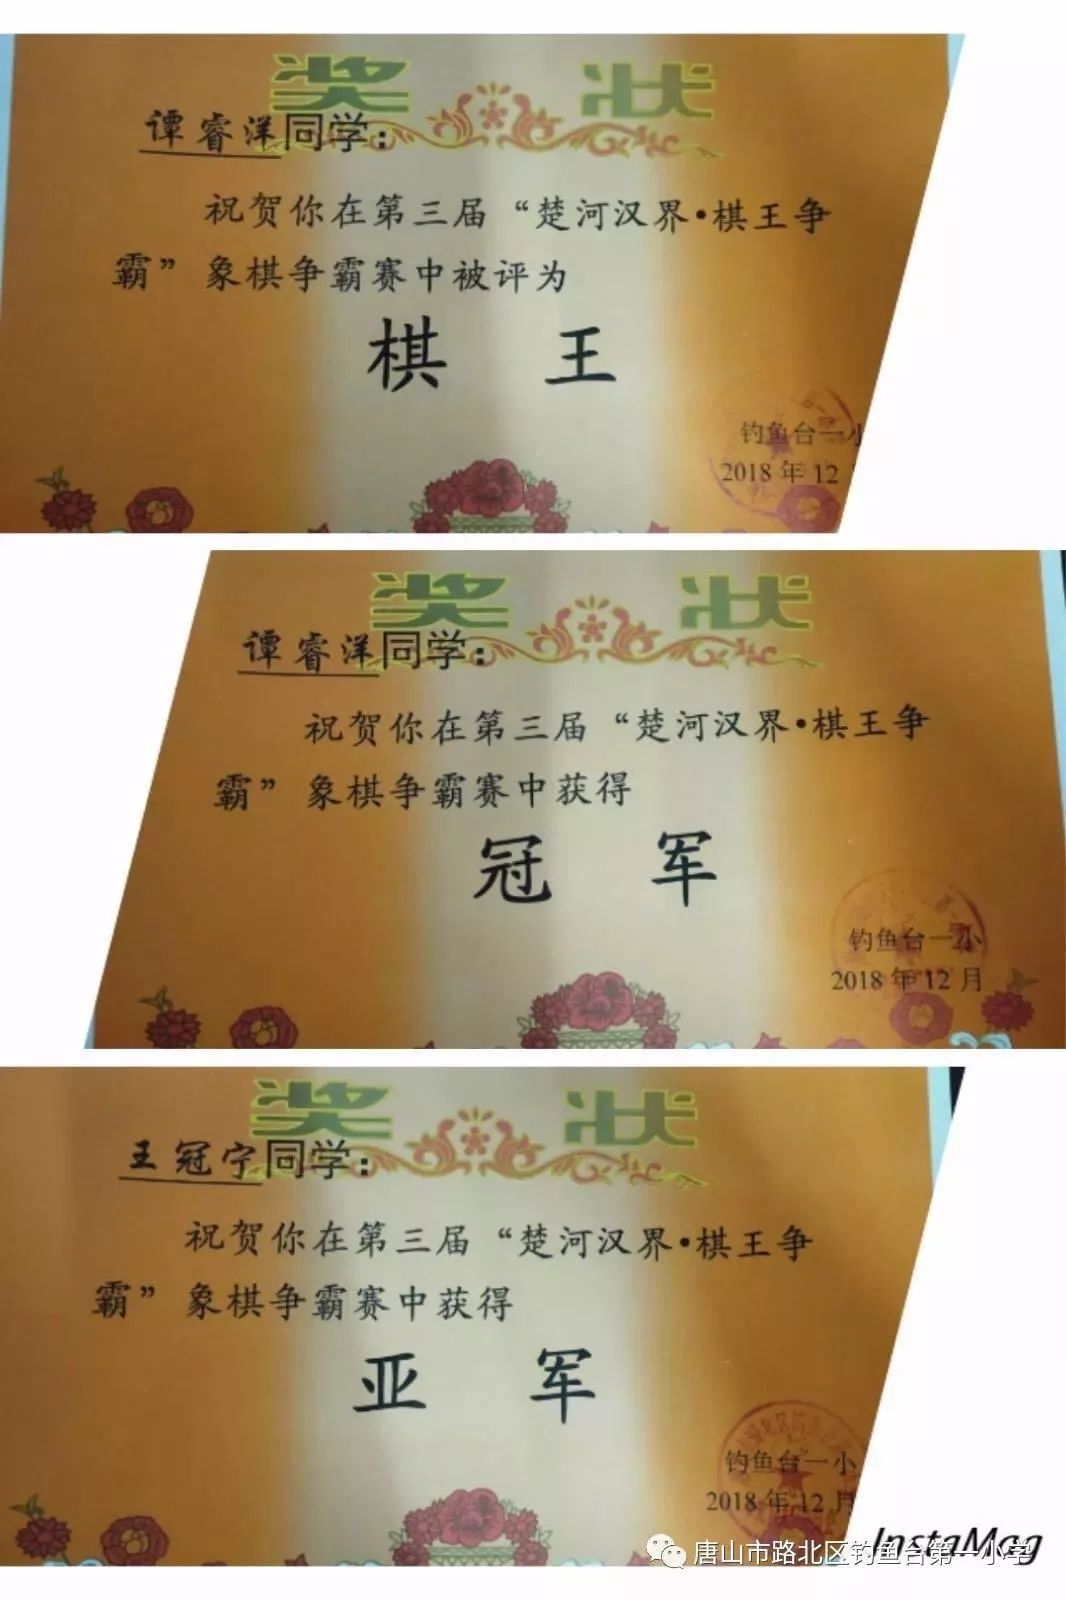 奖 状
谭睿洋同学：
祝贺你在第三届“楚河汉界•棋王争
霸”象棋争霸赛中被评为
棋 王
钓鱼台一小
2018年12
奖 状
谭睿洋同学：
祝贺你在第三届“楚河汉界•棋王争
霸”象棋争霸赛中获得
冠 军
钓鱼台一小
2018年12月
奖 状
王冠宁同学：
祝贺你在第三届“楚河汉界•棋王争
霸”象棋争霸赛中获得
亚 军
钓鱼台一小
2018年12月
InstaMag
唐山市路北区钓鱼台第一小学